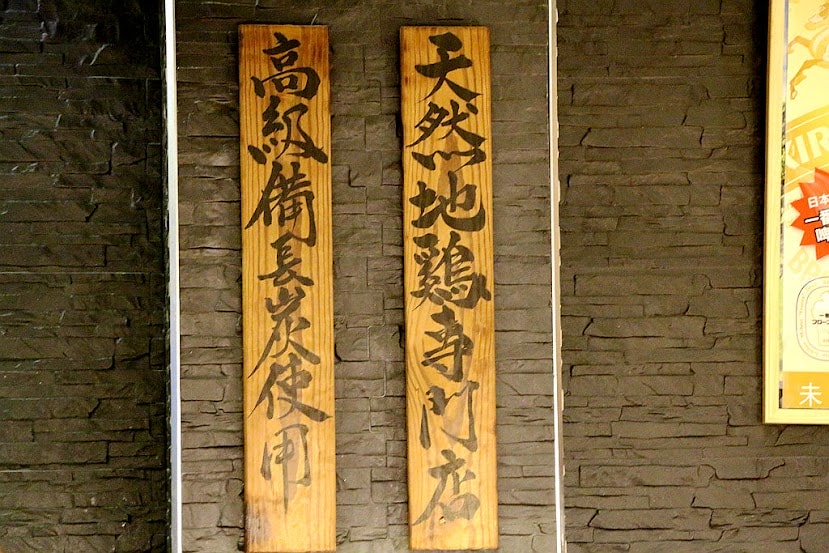 天然地鶏専門店
高級備長炭使用
日本
一番
未